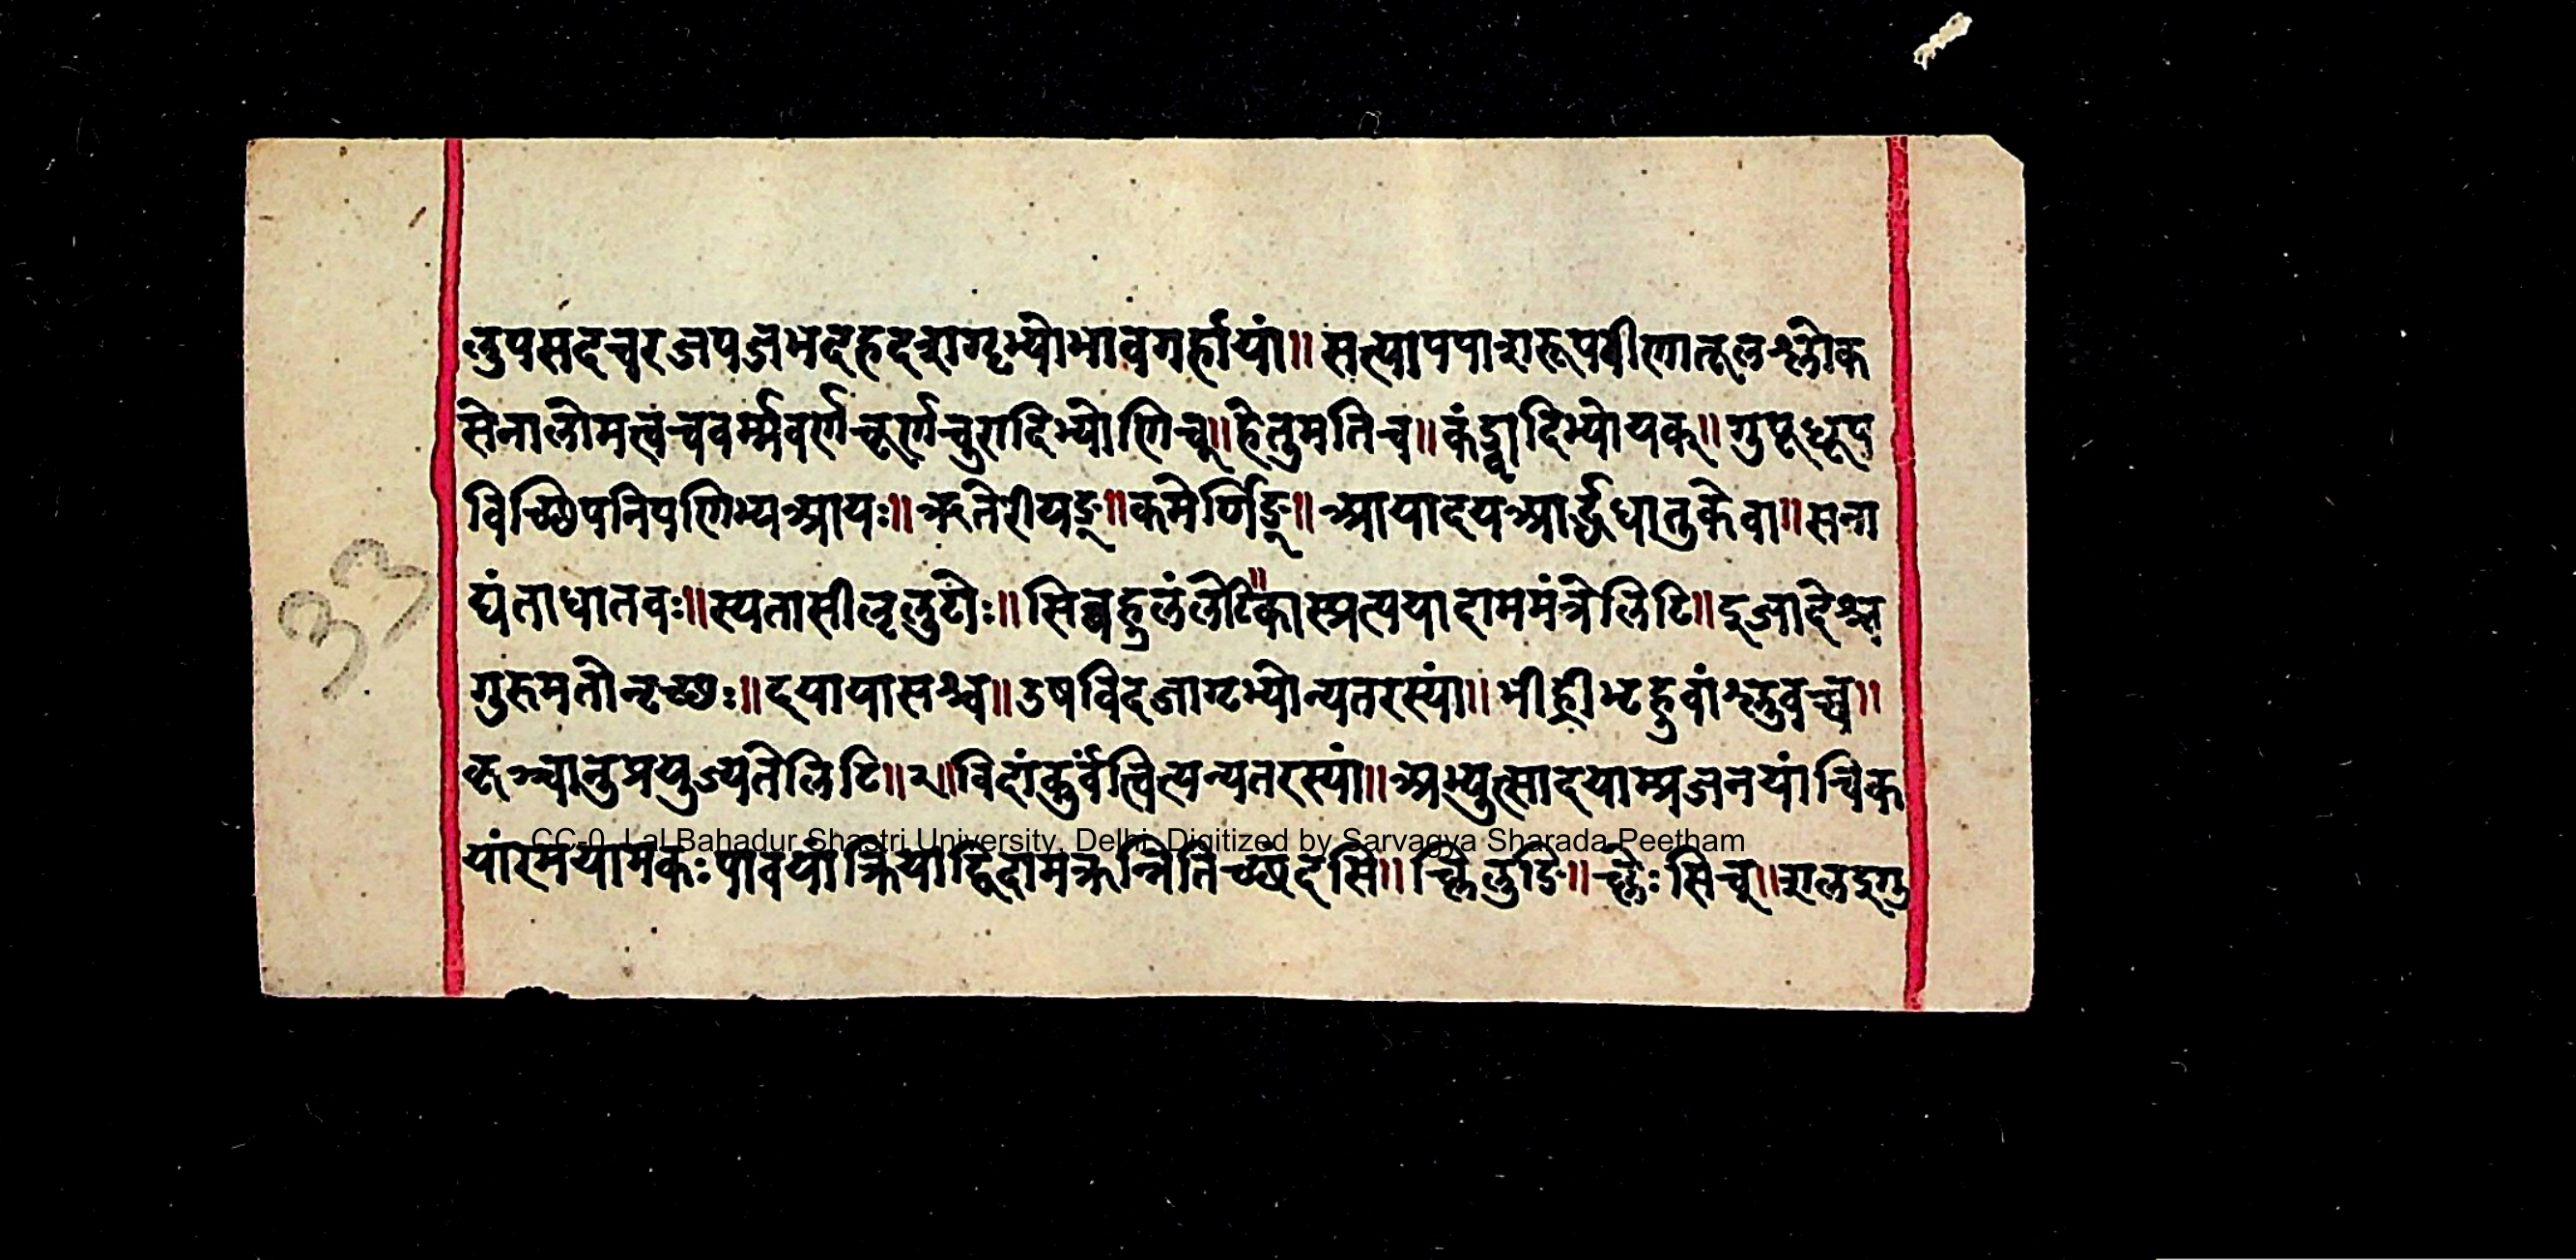 लुपसदचरजपजभदहदशगॄभ्योभावगर्हायां॥ सत्यापपाशरूपवीणातूलश्लोक
सेनालोमत्वचवर्म्मवर्णचूर्णचुरादिभ्योणिच्॥हेतुमतिच॥कंड्वादिभ्योयक्॥गुपूधूप
विच्छिपनिपणिभ्यआयः॥ऋतेरीयङ्॥कमेर्णिङ्॥आयादयआर्द्धधातुकेवा॥सना
द्यंताधातवः॥स्यतासीलृलुटोः॥सिब्बहुलंलेटि॥कास्प्रत्ययादाममंत्रेलिटि॥इजादेश्च
गुरुमतोनृच्छः॥दयायासश्च॥उषविदजागृभ्योन्यतरस्यां॥भीह्रीभृहुवांश्लुवच्च॥
कृञ्चानुप्रयुज्यतेलिटि॥२॥विदांकुर्वंत्वित्यन्यतरस्यां॥अभ्युत्सादयाम्प्रजनयांचिक
यांरमयामकः पावयांक्रियाद्विदामक्रन्नितिच्छंदसि॥च्लिलुङि॥च्लेः सिच्॥शलइगु
33
CC-0. Lal Bahadur Shastri University, Delhi. Digitized by Sarvagya Sharada Peetham